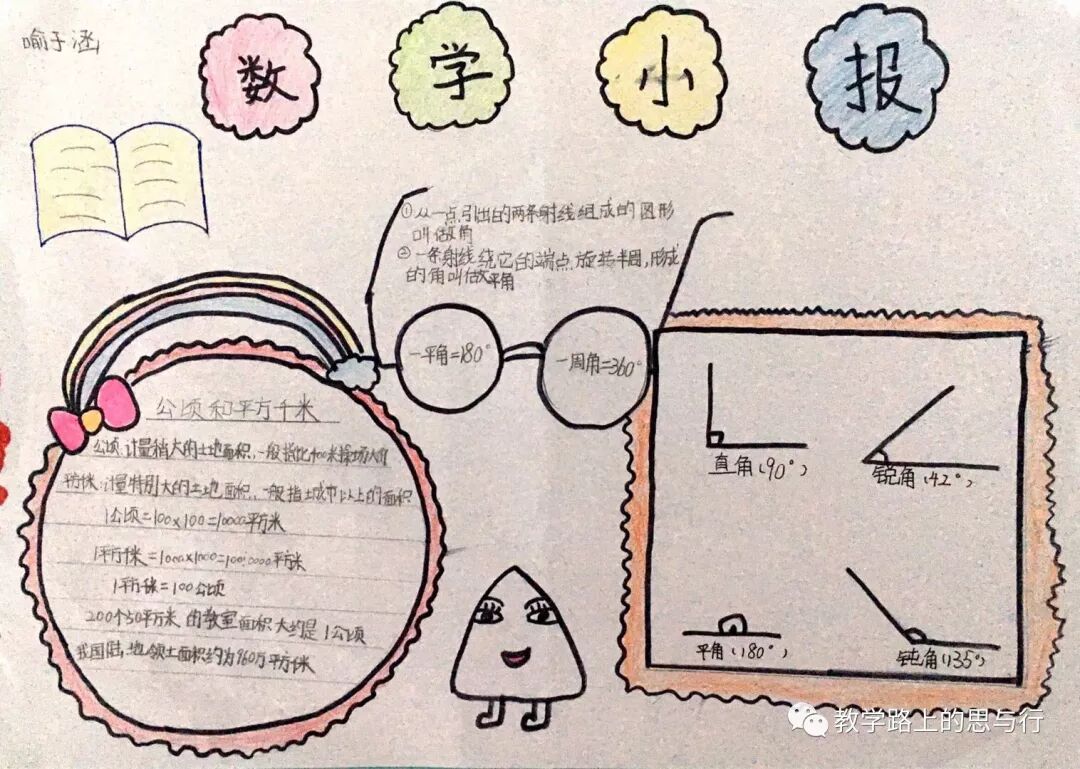 喻子涵
数学小报
①从一点引出的两条射线组成的图形
叫做角
②一条射线绕它的端点旋转半圈,形成
的角叫做平角
一平角=180°
一周角=360°
公顷和平方千米
公顷:计量稍大的土地面积,一般指比400米操场大的
平方千米:计量特别大的土地面积,一般指城市以上的面积
1公顷=100×100=10000平方米
1平方千米=1000×1000=1000000平方米
1平方千米=100公顷
200个50平方米的教室面积大约是1公顷
我国陆地领土面积约为960万平方千米
直角(90°)
锐角(42°)
平角(180°)
钝角(135°)
教学路上的思与行